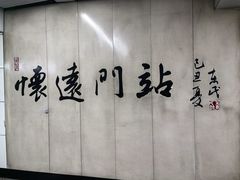 懷遠門站
己丑夏